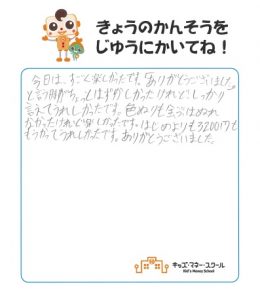 きょうのかんそうを
じゆうにかいてね！
今日は、すごく楽しかったです。「ありがとうございました。」
と言う時がちょっとはずかしかったけれどしっかり
言えてうれしかったです。色ぬりも全ぶはぬれ
なかったけれど楽しかったです。はじめよりも3200円も
もうかってうれしかったです。ありがとうございました。
キッズ・マネー・スクール
Kid's Money School